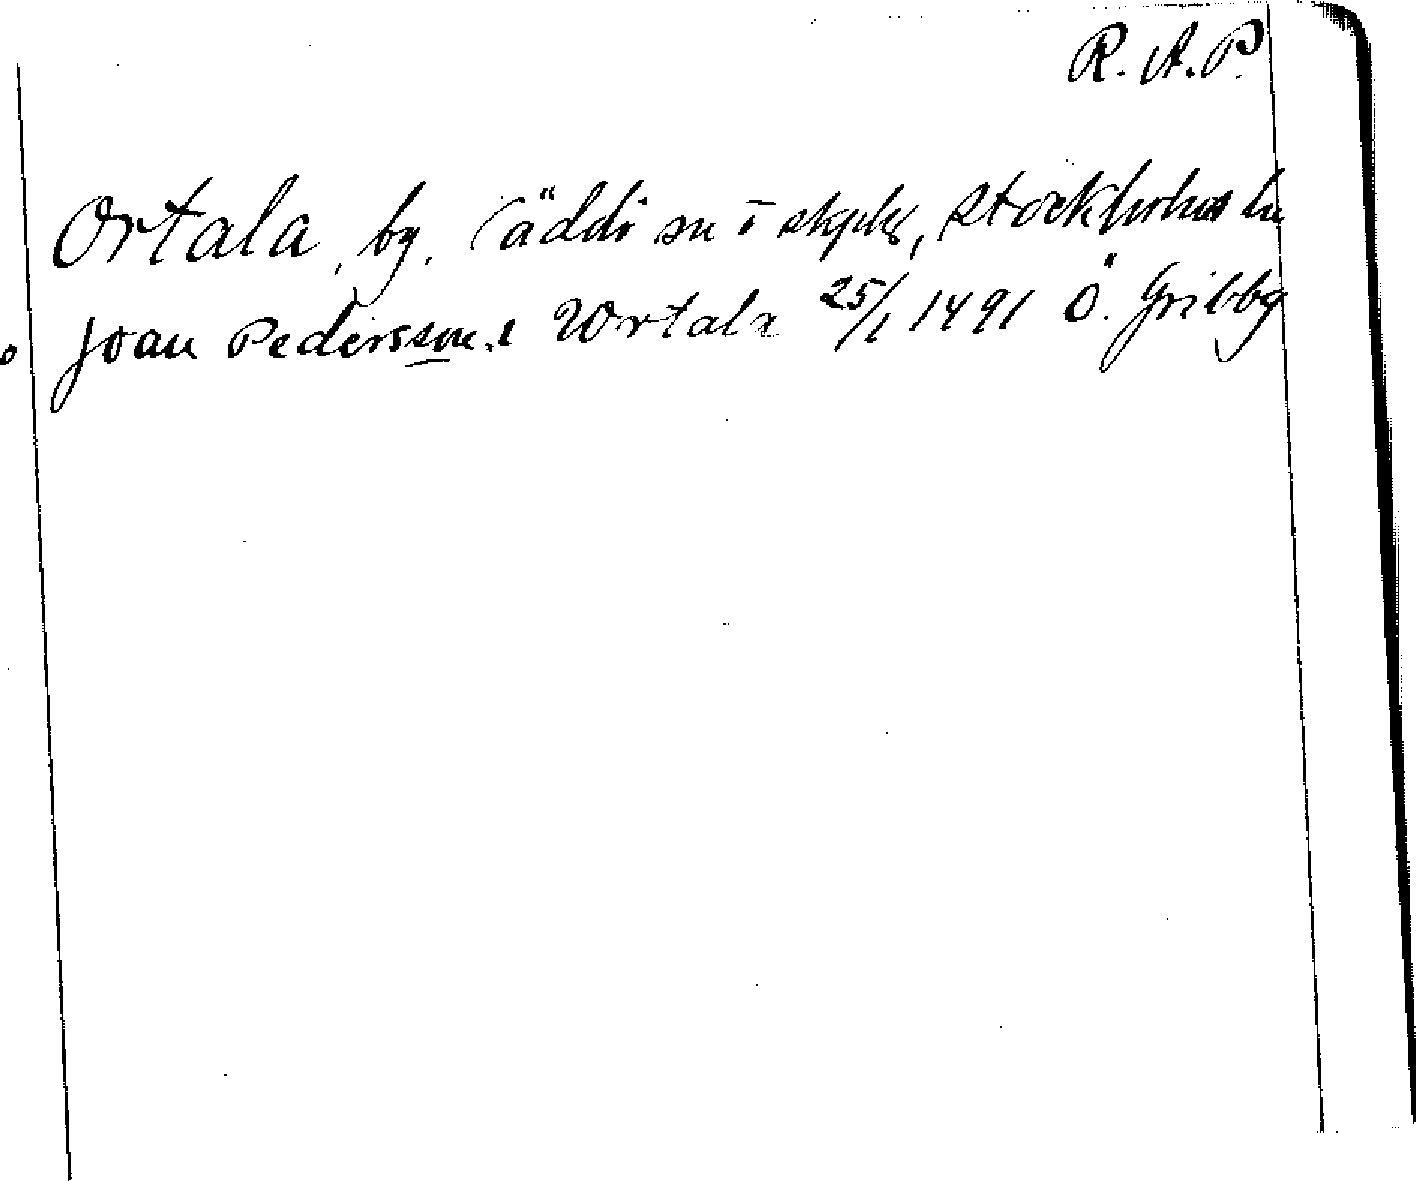 R. A. P.
Ortala, by, Väddö sn o skplg, Stockholms län
Joan Pedersson i Wrtala 25/1 1491 Ö. Gribby